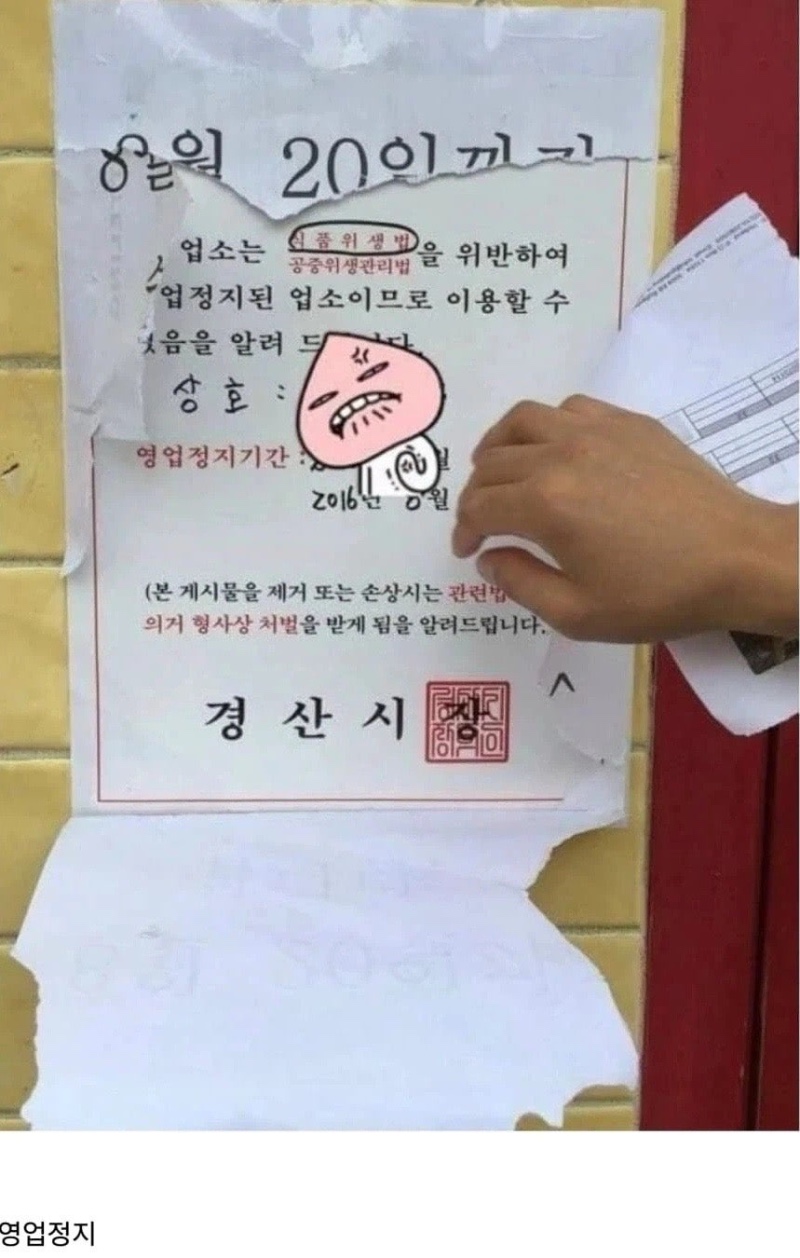 8월 20일까지
업소는 식품위생법
공중위생관리법을 위반하여
업정지된 업소이므로 이용할 수
음을 알려 드
상호 :
영업정지기간 :
2016년 8월
(본 게시물을 제거 또는 손상시는 관련법
의거 형사상 처벌을 받게 됨을 알려드립니다.
경 산 시 장
영업정지